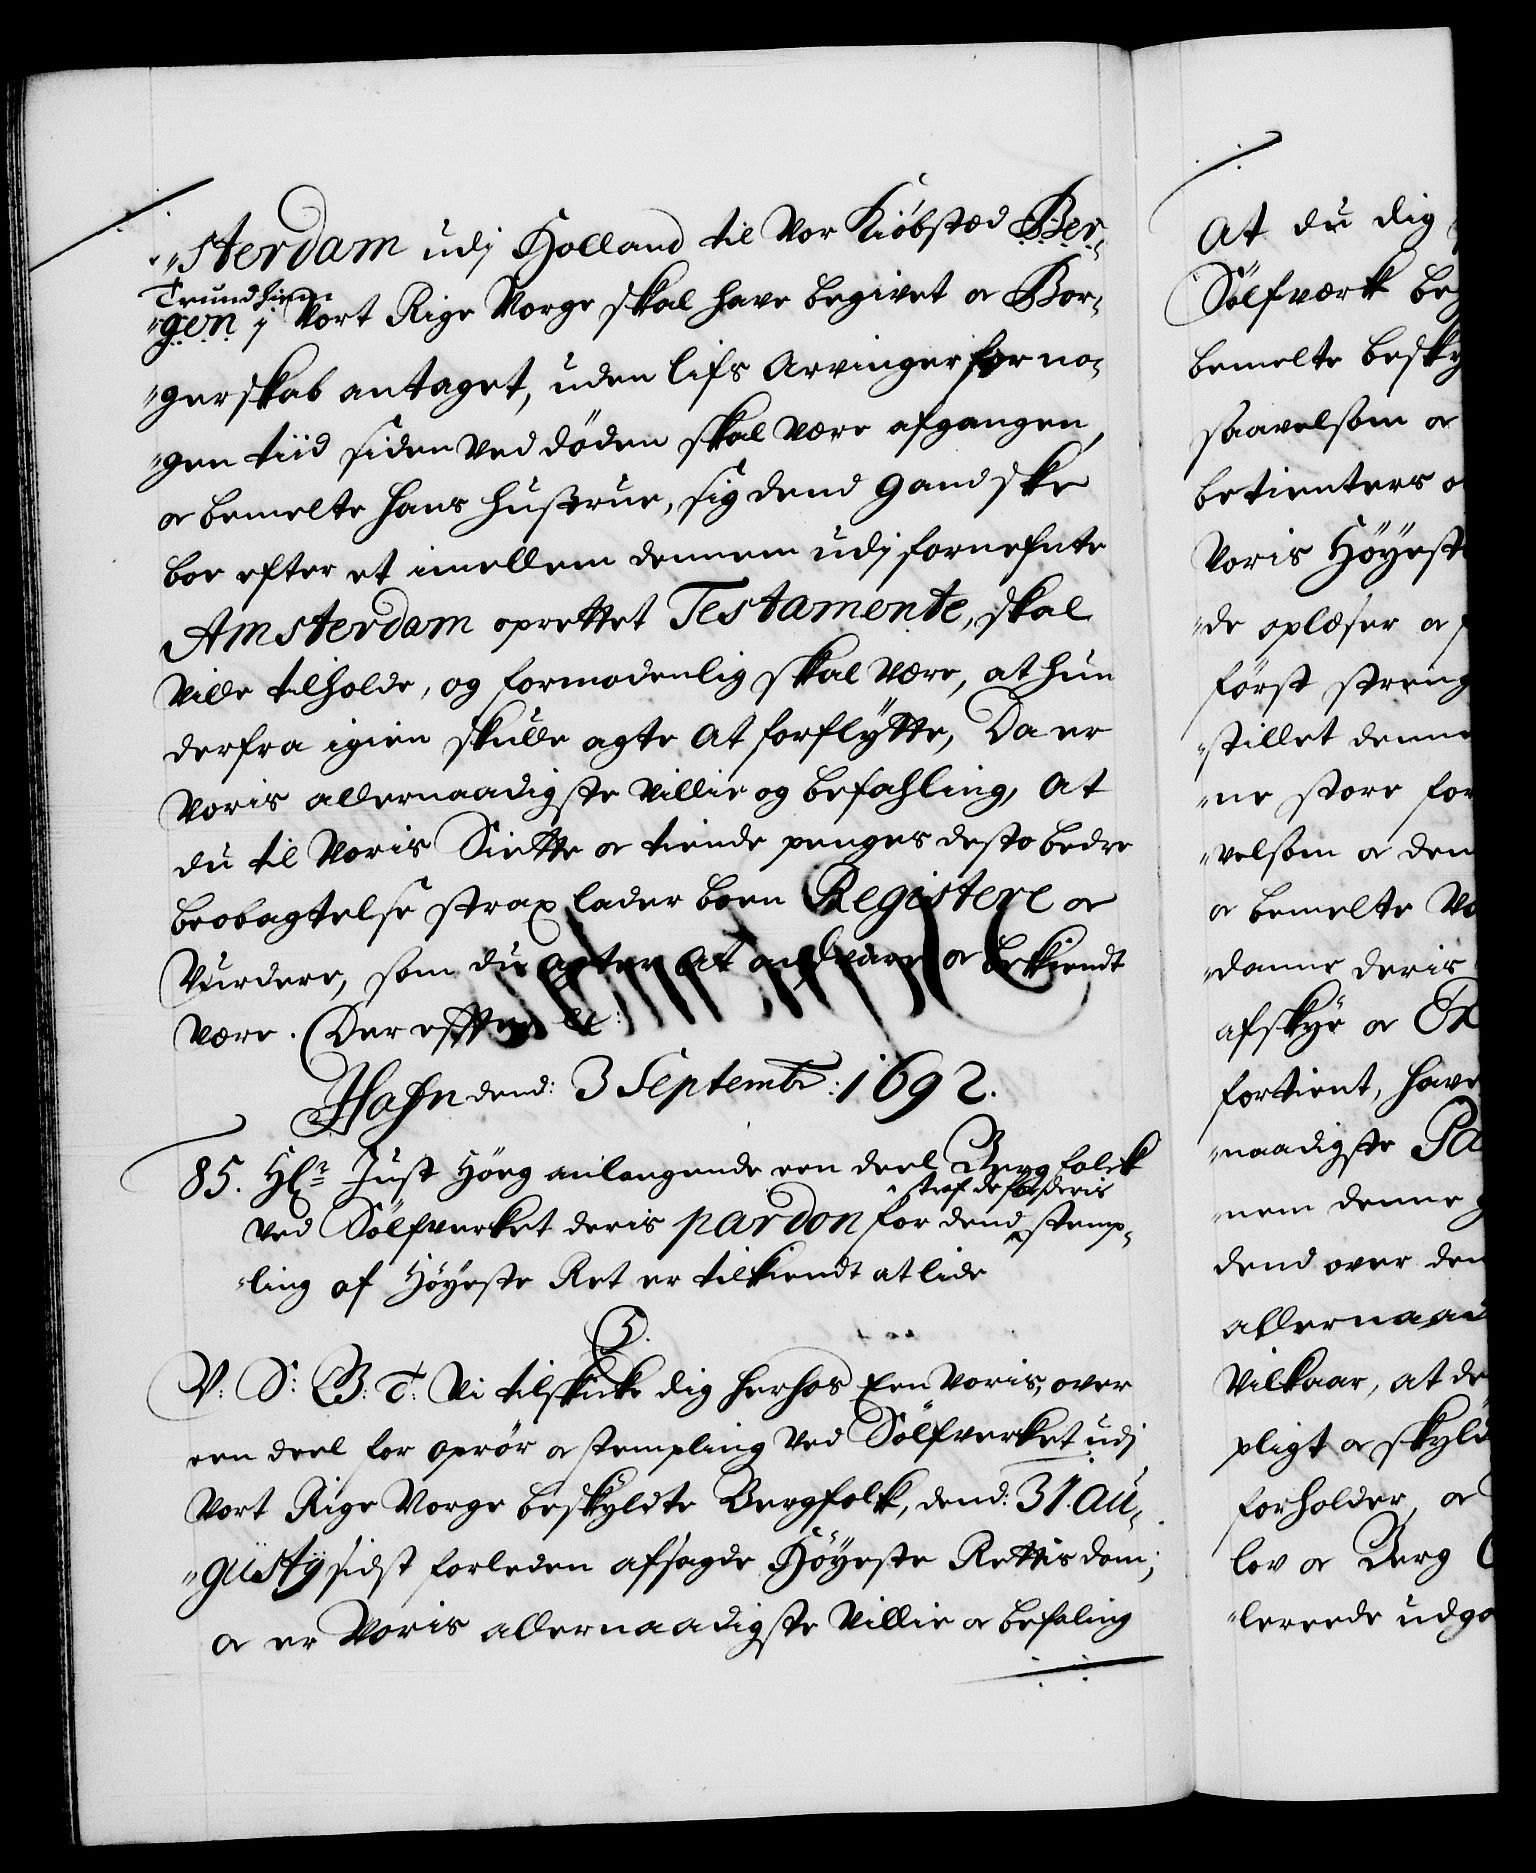 "sterdam udj Holland til Vor Kiöbsted Ber-
Trundhiem
"gen j Vort Rige Norge skal have begivet oc Bor-
"gerskab antaget, uden lifs Arvinger for no-
"gen tiid siden ved döden skal være afgangen,
oc bemelte hans hustrue, sig dend gandske
boe efter et imellem dennem udj fornefnte
Amsterdam oprettet Testamente, skal
ville tilholde, og formodenlig skal være, at hun
derfra igien skulle agte at forflÿtte, Da er
Voris allernaadigste villie og befahling, At
du til Voris Siette oc tiende penges desto bedre
beobagtelse strax lader boen Registere oc
Vurdere, som du agter at andsvare oc bekiendt
være. Der effter etc:
Hafn dend: 3 Septembr: 1692.
85. Hr. Just Höeg anlangende een deel Bergfolck
straf de for deris
ved Sölfverket deris pardon for dend stemp-
"ling af Höÿeste Ret er tilkiendt at lide
C5.
V: S: G: T: Vi tilskicke dig herhos Een Voris, over
een deel for oprör oc stempling ved Sölfverket udj
Vort Rige Norge beskyldte Bergfolk, dend: 31. Au-
"gustÿ sidst forleden afsagde Höÿeste Rettis dom;
oc er Voris allernaadigste villie oc befaling
At du dig
Sölfverk be
bemelte besky
saavelsom oc
betienters o
Voris Höÿest
"de oplæser oc
först streng
"stillet denne
"ne store for
"velsom oc den
oc bemelte Vo
"danne deris
afskye oc Ex
fortient, have
"naadigste Pa
"nem denne g
dend over den
allernaad
Vilkaar, at de
pligt oc skyld
forholder, oc
lov oc Berg
"lereede udga